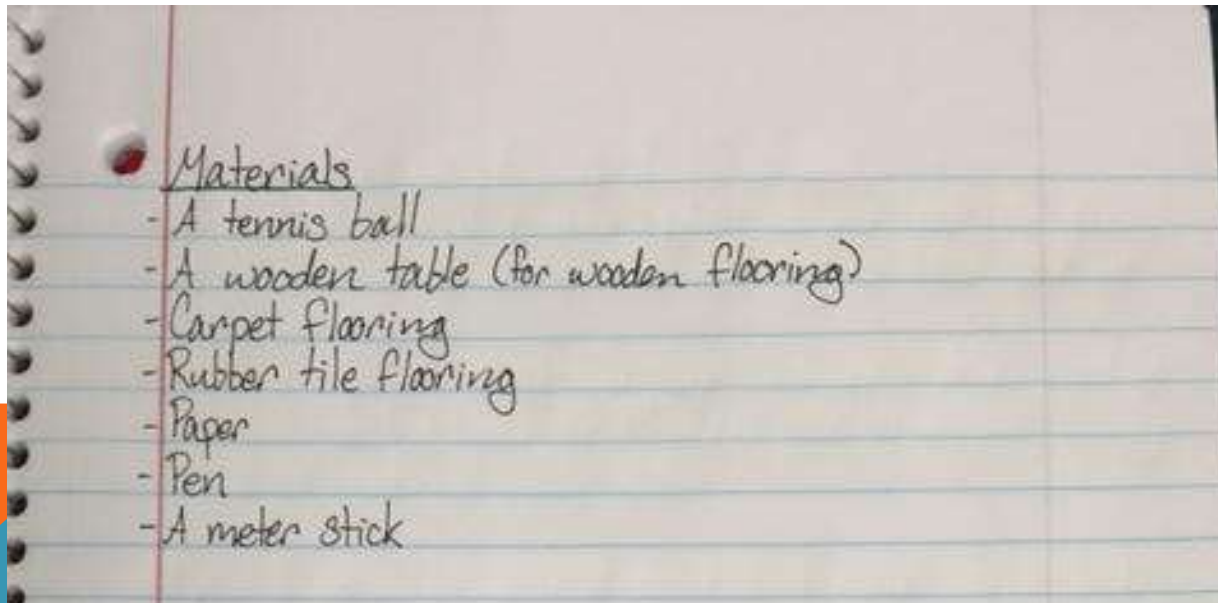 Materials
- A tennis ball
- A wooden table (for wooden flooring)
- Carpet flooring
- Rubber tile flooring
- Paper
- Pen
- A meter stick